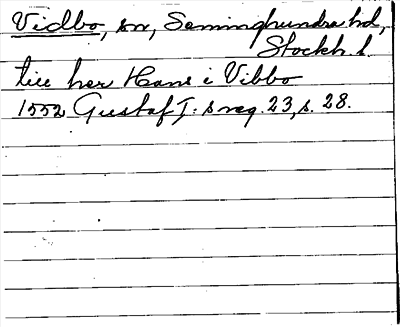 Vidbo, sn, Seminghundra hd,
Stockh. l.
till her Hans i Vibbo
1552 Gustaf I: s reg. 23, s. 28.